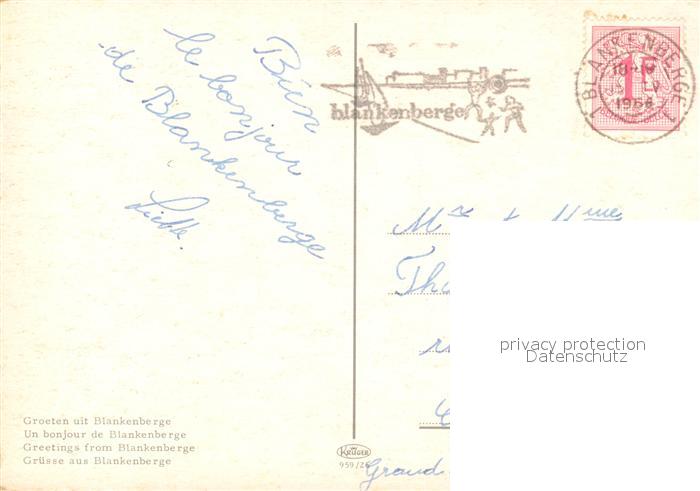 Bien
le bonjour
de Blankenberge
blankenberge
BLANKENBERGE
1F
Mr & Mme
privacy protection
Datenschutz
Groeten uit Blankenberge
Un bonjour de Blankenberge
Greetings from Blankenberge
Grüsse aus Blankenberge
KRÜGER
Grand